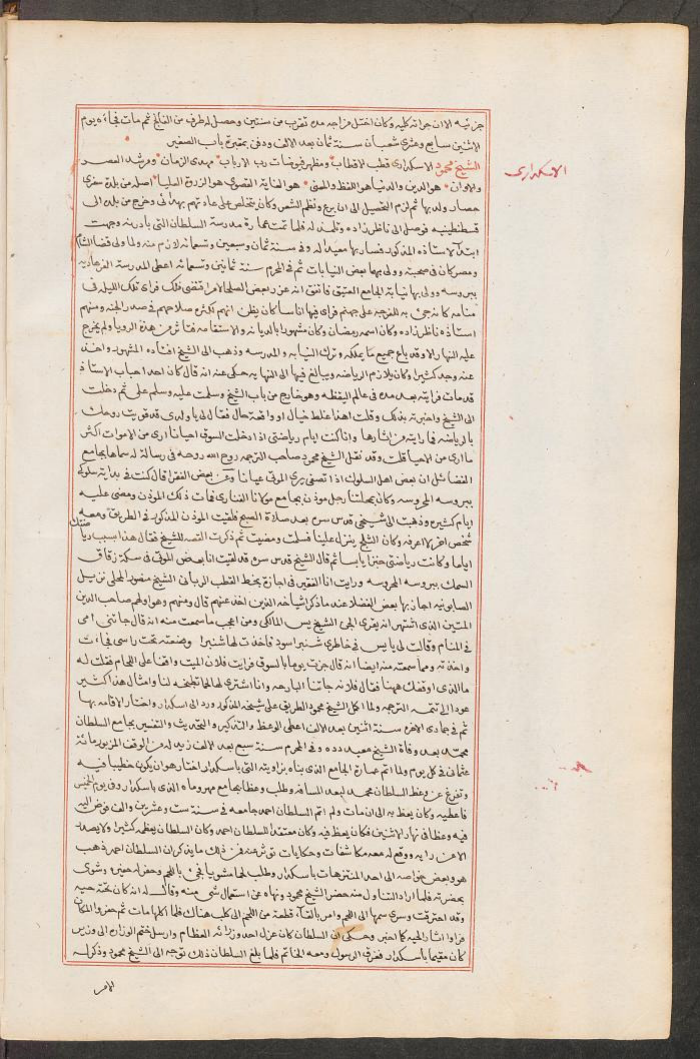 جزئيه الا ان جراته كليه وكان اختل مزاجه مدة تقرب من سنتين وحصل له طرف من الفالج ثم مات فجاءة يوم
الاثنين سابع وعشري شعبان سنة ثمان بعد الالف ودفن بمقبرة باب الصغير
الشيخ محمود الاسكداري قطب الاقطاب ومظهر فيوضات رب الارباب مهدي الزمان ومرشد العصر
الاسكداري
والاوان هو الدين والدنيا هو اللفظ والمعنى هو الغاية القصوى هو الذروة العليا اصله من بلدة سفري
حصار ولد بها ثم لزم التحصيل الى ان برع ونظم الشعر وكان يتخلص على عادتهم بهدائي وخرج من بلده الى
قسطنطينيه فوصل الى ناظر زاده وتلمذ له فلما تمت عمارة مدرسة السلطان التي بادرنه وجهت
ابتداء لاستاذه المذكور فصار بها معيدا له وفي سنة ثمان وسبعين وتسعمائة لازم منه ولما ولى قضا الشام
ومصر كان في صحبته وولى بها بعض النيابات ثم في المحرم سنة ثمانين وتسعمائة اعطى المدرسة الفرهاديه
ببروسه وولى بها نيابة الجامع العتيق فاتفق انه عزر بعض الصلحا لامر اقتضى ذلك فراى تلك الليلة في
منامه كانه جئ به للتفرج على جهنم فراى فيها اناسا كان يظن انهم لكثرة صلاحهم في صدر الجنة ومنهم
استاذه ناظر زاده وكان اسمه رمضان وكان مشهورا بالديانة والاستقامة فتاثر من هذه الرويا ولم يخرج
عليه النهار الا وقد باع جميع ما يملكه وترك النيابة والمدرسه وذهب الى الشيخ افتاده المشهور واخذ
عنه وجد كثيرا وكان يلازم الرياضه ويبالغ فيها الى النهايه حكى عنه انه قال كان احد احباب الاستاذ
قد مات فرايته بعد مدة في عالم اليقظه وهو خارج من باب الشيخ وسلمت عليه وسلم على ثم دخلت
الى الشيخ واخبرته بذلك وقلت اهذا غلط خيال او واقعة حال فقال لي يا ولدي قد قويت روحك
بالرياضه فما رايته من اثارها وانا كنت ايام رياضتي اذا دخلت السوق احيانا ارى من الاموات اكثر
ما ارى من الاحيا قلت وقد نقل الشيخ محمود صاحب الترجمه روح الله روحه في رسالة له سماها بجامع
الفضائل ان بعض اهل السلوك اذا تصفى يرى الموتى عيانا وعن بعض الفقرا قال كنت في بداية سلوكه
ببروسه المحروسه وكان بمحلتنا رجل موذن بجامع مولانا الفناري فمات ذلك الموذن ومضى عليه
ايام كثيره وذهبت الى شيخي قدس سره بعد صلاة الصبح فلقيت الموذن المذكور في الطريق ومعه
شخص اخر لا اعرفه وكان الثلج ينزل علينا فسلمت ومضيت ثم ذكرت القصه للشيخ فقال هذا سبب رياضتك
اياما وكانت رياضتي خبزا يابسا ثم قال الشيخ قدس سره قد لقيت انا بعض الموتى في سكة زقاق
السمك ببروسه المحروسه ورايت انا الفقير في اجازة بخط القطب الرباني الشيخ منصور المحلي نزيل
الصابونيه اجاز بها بعض الفضلا عند ما ذكر اشياخه الذين اخذ عنهم قال ومنهم وهو اولهم صاحب الدين
المتين الذي اشتهر انه يقرى الجن الشيخ يس المالكي ومن اعجب ما سمعت منه انه قال جاءتني امي
في المنام وقالت لي يا يس في خاطري شنبر اسود فاخذت لها شنبرا وضعته تحت راسي فجاءت
واخذته ومما سمعته منه ايضا انه قال جزت يوما بالسوق فرايت فلان الميت واقفا على اللحام فقلت له
ما الذي اوقفك ههنا فقال فلانه جاءتنا البارحه وانا اشتري لها لحما تطبخه لنا وامثال هذا كثير
عود الى تتمة الترجمه ولما اكمل الشيخ محمود الطريق على شيخه المذكور ورد الى اسكدار واختار الاقامه بها
ثم في جمادي الاخره سنة اثنين بعد الالف اعطي الوعظ والتذكير والتحديث والتفسير بجامع السلطان
محمد بعد وفاة الشيخ معيد دده وفي المحرم سنة سبع بعد الالف زيد له من الوقف المزبور مائة
عثماني في كل يوم ولما اتم عمارة الجامع الذي بناه بزاويته التي باسكدار اختار هو ان يكون خطيبا فيه
وتفرغ عن وعظ السلطان محمد لبعد المسافه وطلب وعظا بجامع مهروماه الذي باسكدار في يوم الخميس
فاعطيه وكان يعظ به الى ان مات ولما اتم السلطان احمد جامعه في سنة ست وعشرين والف فوض اليه
فيه وعظا في نهار الاثنين فكان يعظ فيه وكان معتقد السلطان احمد وكان السلطان يعظمه كثيرا ولا يصدر
الا عن رايه ووقع له معه مكاشفات وحكايات توثر عنه فمن ذلك ما يذكر ان السلطان احمد ذهب
هو وبعض خواصه الى احد المنتزهات باسكدار وطلب لحما مشويا فجئ باللحم وحفر له حفيره وشوى
بحضرته فلما اراد التناول منه حضر الشيخ محمود ونهاه عن استعمال شي منه وقال له انه كان تحته حيه
وقد احترقت وسرى سمها الى اللحم وامر بالقاء قطعة من اللحم الى كلب هناك فلما اكلها مات ثم حفر والمكان
فراوا اثار الحية كما اخبر وحكى ان السلطان كان عزل احد وزرائه العظام وارسل ختم الوزاره الى وزير
كان مقيما باسكدار فغرق الرسول ومعه الخاتم فلما بلغ السلطان ذلك توجه الى الشيخ محمود وذكر له
الامر